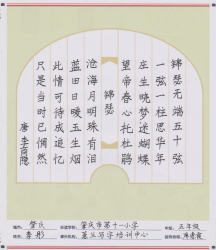 锦瑟无端五十弦
一弦一柱思华年
庄生晓梦迷蝴蝶
望帝春心托杜鹃
锦瑟
沧海月明珠有泪
蓝田日暖玉生烟
此情可待成追忆
只是当时已惘然
唐李商隐
肇庆市第十一小学
五年级